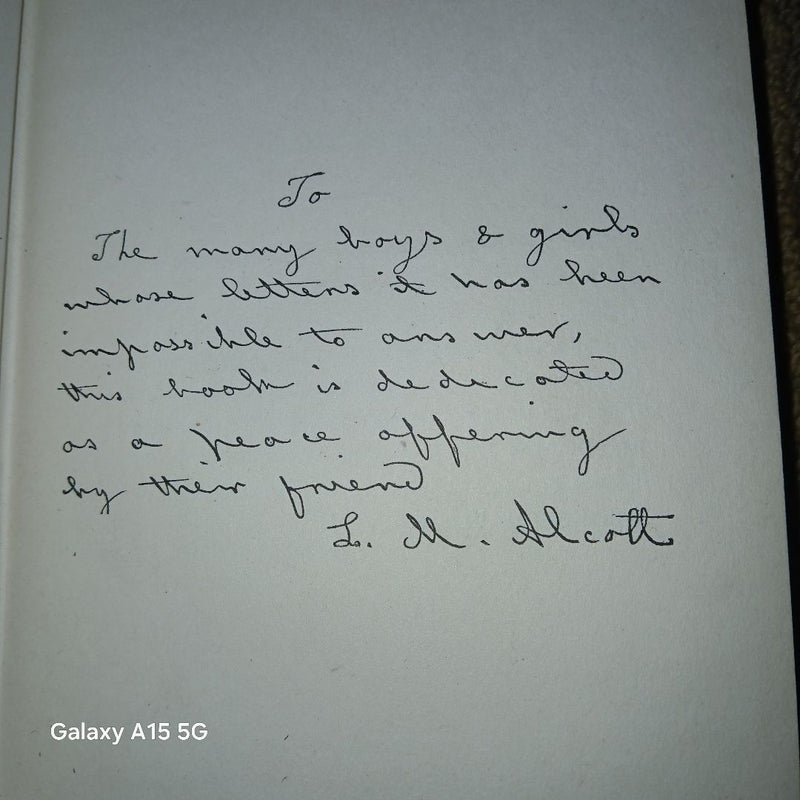 To
The many boys & girls
whose letters it has been
impossible to answer,
this book is dedicated
as a peace offering
by their friend
L. M. Alcott
Galaxy A15 5G